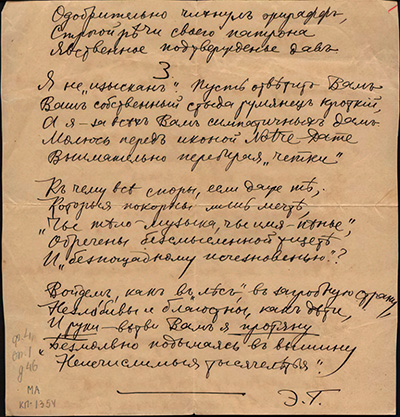 Одобрительно чихнулъ жирафъ,
Строгой рѣчи своего патрона
Явственное подтвержденье давъ
3
Я не „изысканъ". Пусть отвѣтитъ Вамъ
Вашъ собственный стыда румянецъ кроткій
А я – за всѣхъ Вамъ симпатичныхъ дамъ
Молюсь передъ иконой Nôtre-Dame
Внимательно перебирая „четки"
Къ чему всѣ споры, если даже тѣ,
Которыя покорны лишь мечтѣ,
„Чье тѣло – музыка, чье имя – пѣнье",
Обречены безсмысленной тщетѣ
И „безпощадному исчезновенью"?
Войдемъ, какъ въ лѣсъ – въ загробную страну,
Незлобивы и благостны, какъ дѣти,
И руки – вѣтви Вамъ я протяну
Безмолвно подымаясь въ вышину
„Неисчислимыя тысячелѣтья".
Э.Г.
ф.4
оп.1
д 46
МА
КП-1354